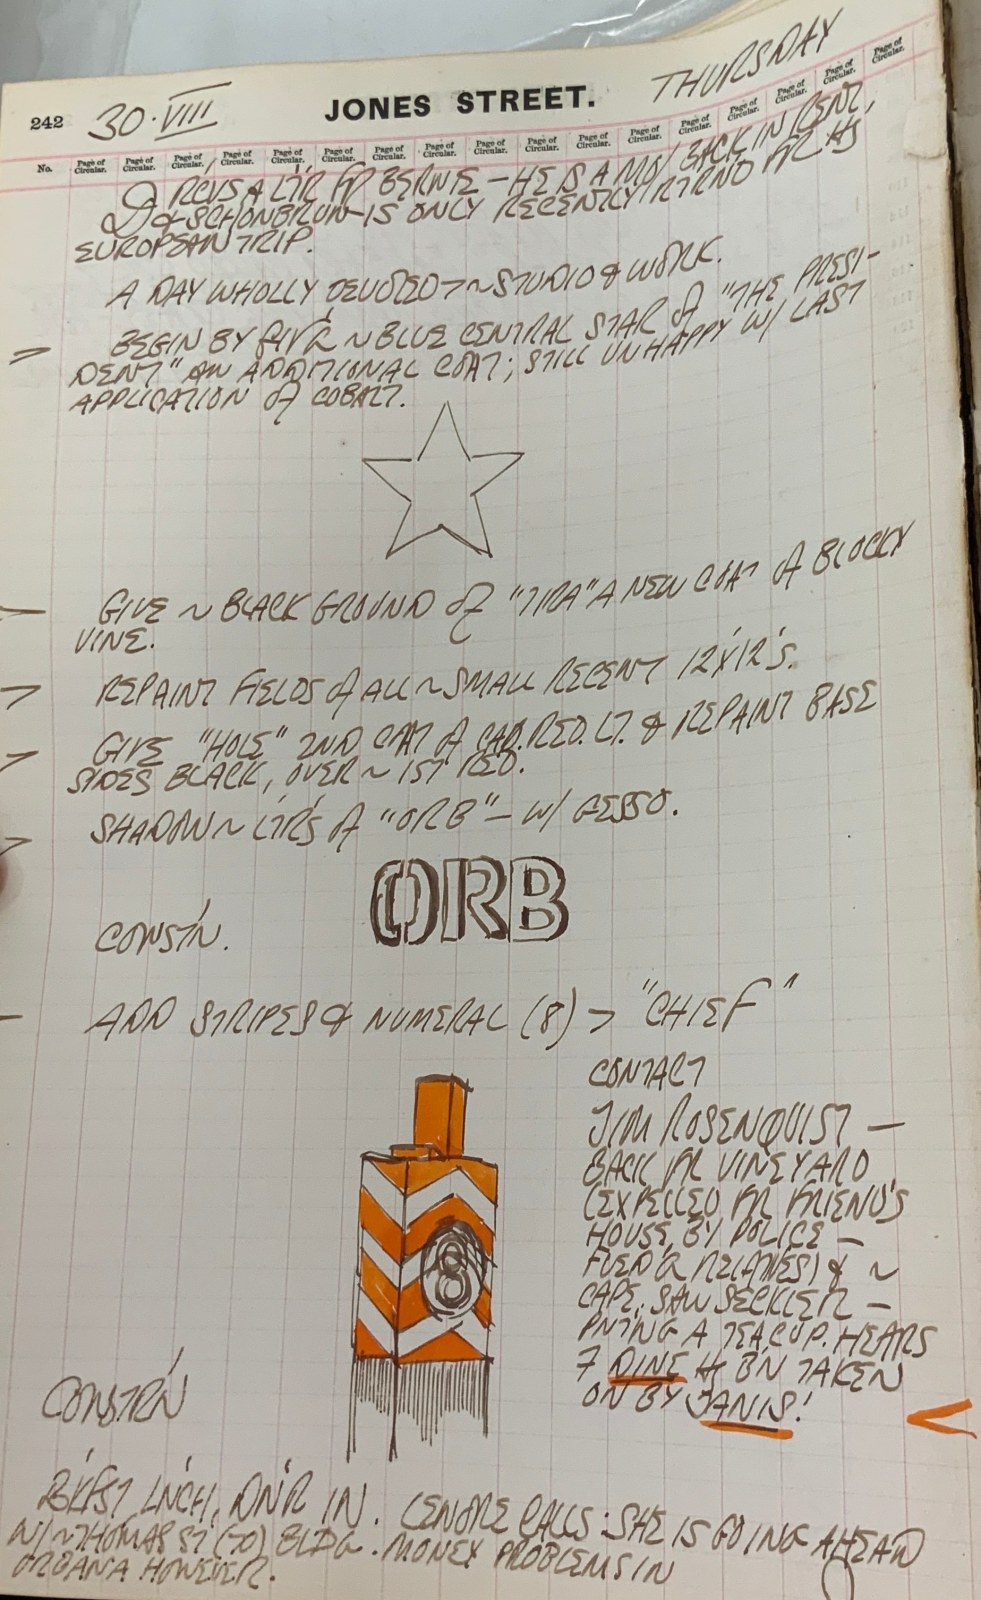 242 30·VIII JONES STREET. THURSDAY
No. Page of Circular. Page of Circular. Page of Circular. Page of Circular. Page of Circular. Page of Circular. Page of Circular. Page of Circular. Page of Circular. Page of Circular. Page of Circular. Page of Circular. Page of Circular. Page of Circular. Page of Circular. Page of Circular. Page of Circular.
A LTR FR BERNIE – HE IS A MO/ BACK IN
& SCHONBRUN – IS ONLY RECENTLY RTRND FR HS
EUROPEAN TRIP.
A DAY WHOLLY DEVOTED > ~ STUDIO & WORK.
BEGIN BY GIV'G ~ BLUE CENTRAL STAR of "THE PRESI-
DENT" AN ADDITIONAL COAT; STILL UNHAPPY W/ LAST
APPLICATION of COBALT.
GIVE ~ BLACK GROUND of "TIRA" A NEW COAT of BLOCKX
VINE.
REPAINT FIELDS of ALL ~ SMALL RECENT 12"X12"S.
GIVE "HOLE" 2ND COAT of CAD. RED. LT. & REPAINT BASE
SIDES BLACK, OVER ~ 1ST RED.
SHADOW ~ LTR'S of "ORB" – W/ GESSO.
ORB
CONSTN.
ADD STRIPES & NUMERAL (8) > "CHIEF"
8
CONTACT
JIM ROSENQUIST –
BACK FR VINEYARD
(EXPELLED FR FRIEND'S
HOUSE, BY POLICE –
& ~
CAPE. SAW SECKLER –
PNTING A TEACUP. HEARS
DINE H BN TAKEN
ON BY JANIS!
CONSTRN
BKFST LNCH, DN'R IN. LENORE CALLS: SHE IS GOING AHEAD
W/ ~ THOMAS ST (70) BLDG. MONEY PROBLEMS IN
URBANA HOWEVER.